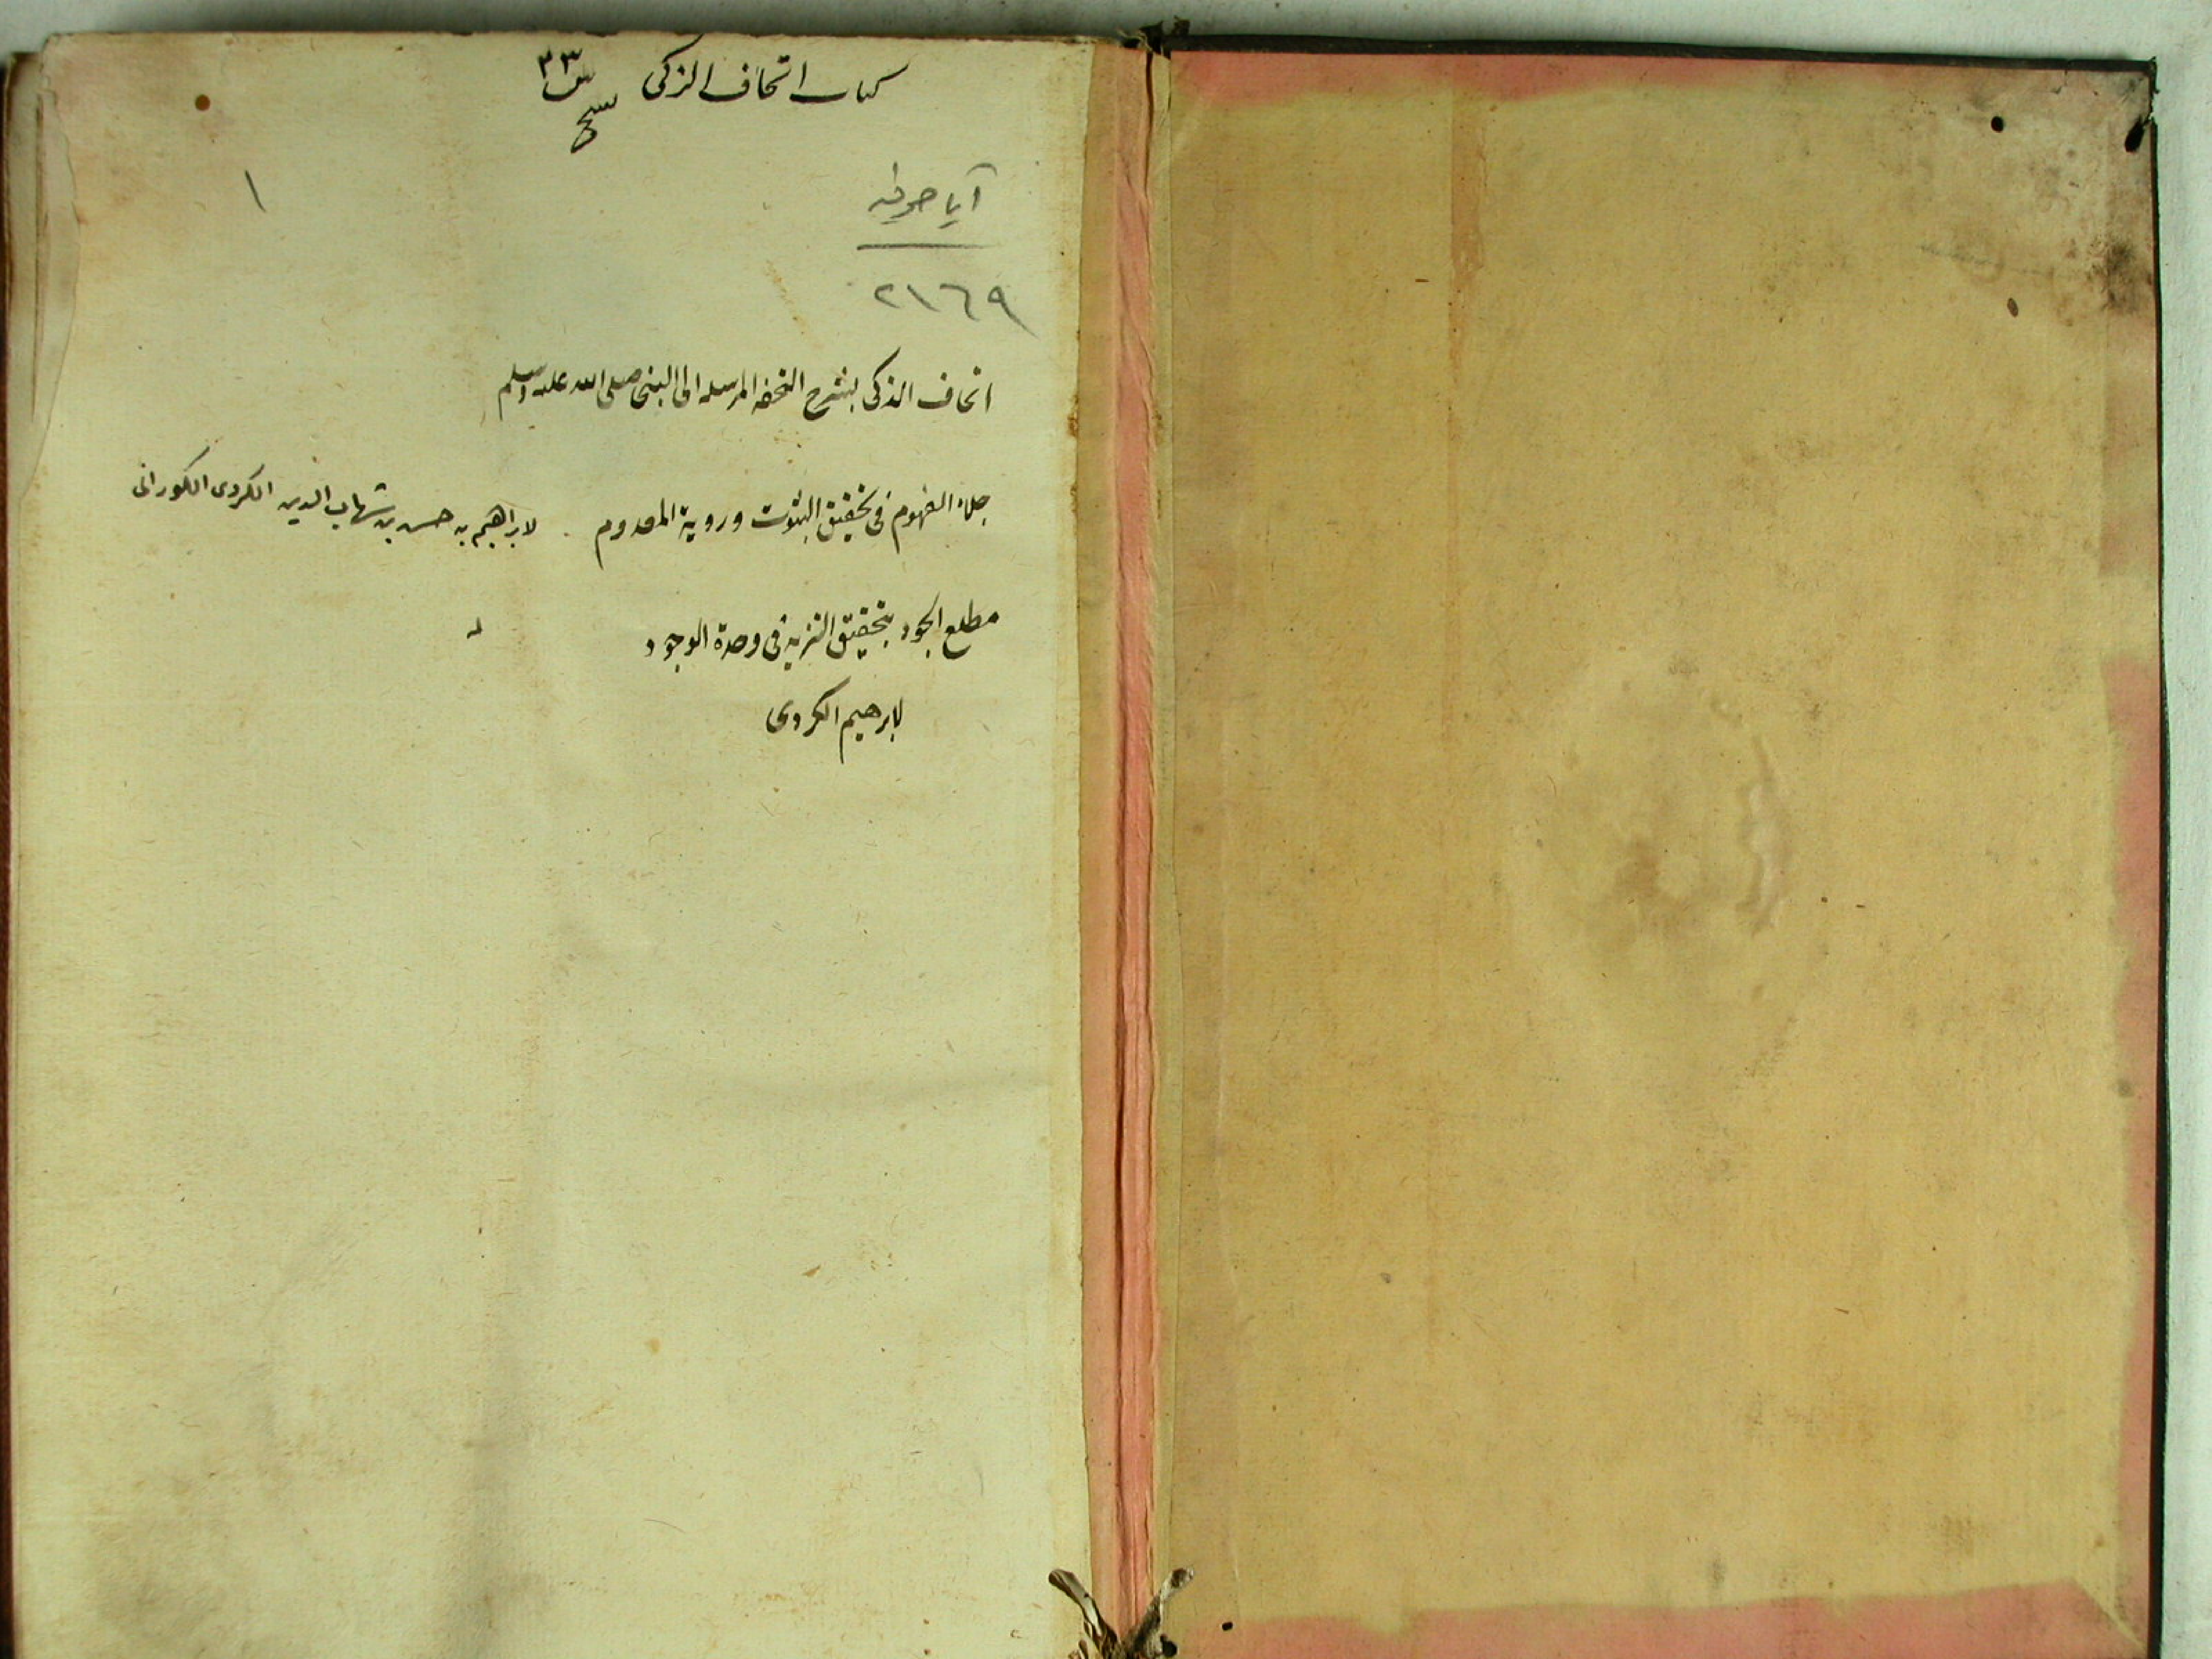 كتاب اتحاف الزكى س ٣٣
١
آيا صوفيه
٢١٦٩
اتحاف الذكى بشرح التحفه المرسله الى النبى صلى الله عليه وسلم
جلاء الفهوم فى تحقيق الثبوت وروية المعدوم لابراهيم بن حسن بن شهاب الدين الكردى الكورانى
مطلع الجود بتحقيق التنزيه فى وحدة الوجود له
لابرهيم الكردى